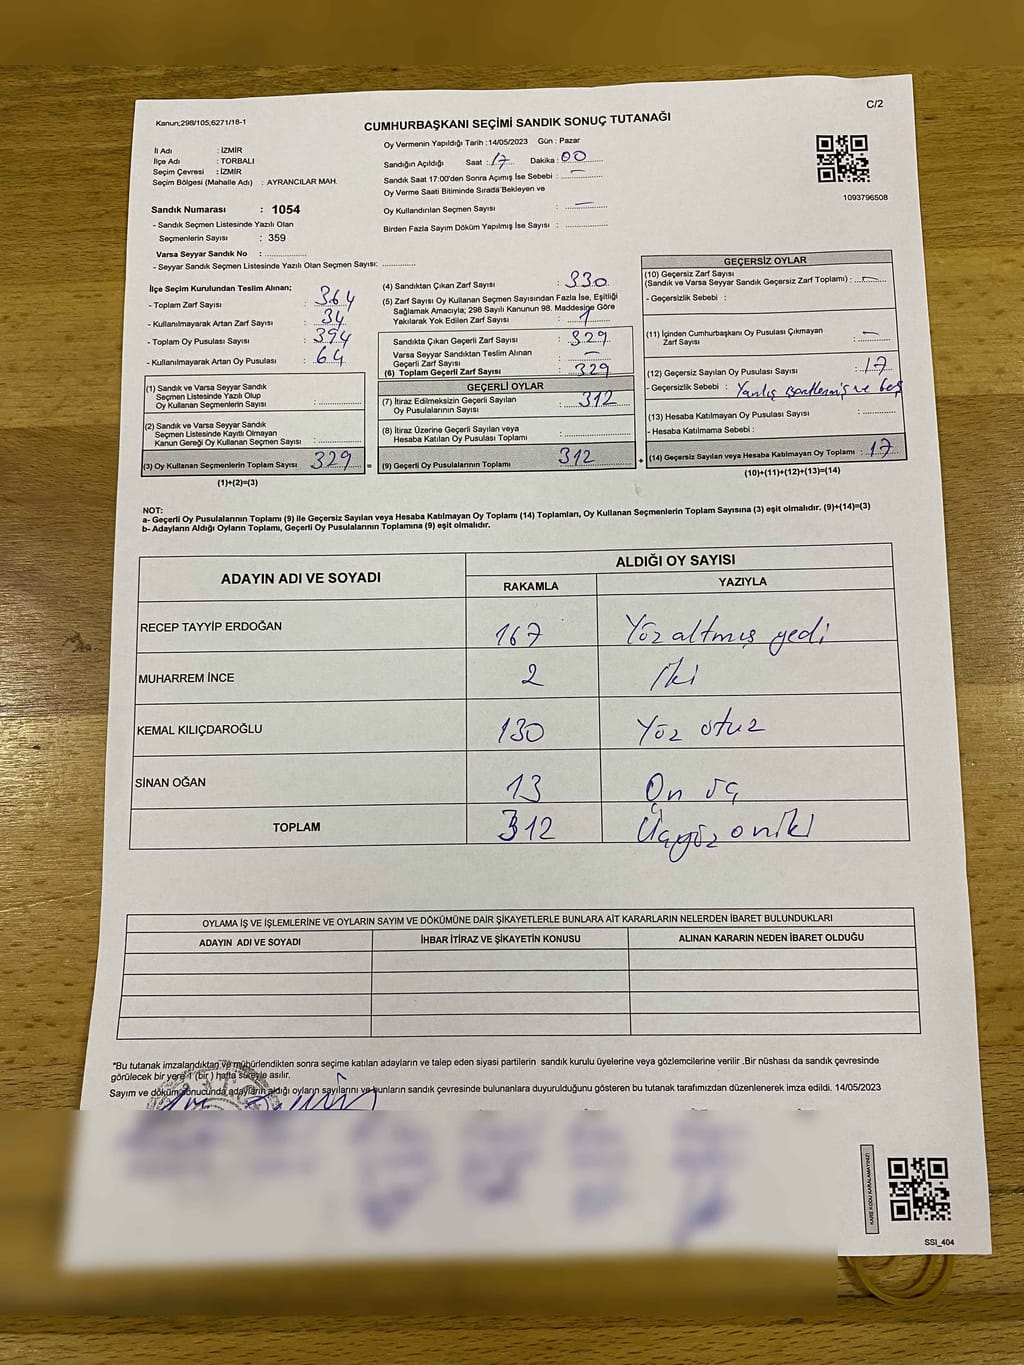 Kanun;298/105,6271/18-1
C/2
CUMHURBAŞKANI SEÇİMİ SANDIK SONUÇ TUTANAĞI
İl Adı : İZMİR
İlçe Adı : TORBALI
Seçim Çevresi : İZMİR
Seçim Bölgesi (Mahalle Adı) : AYRANCILAR MAH.
Sandık Numarası : 1054
- Sandık Seçmen Listesinde Yazılı Olan
Seçmenlerin Sayısı : 359
Varsa Seyyar Sandık No :
- Seyyar Sandık Seçmen Listesinde Yazılı Olan Seçmen Sayısı:
Oy Vermenin Yapıldığı Tarih :14/05/2023 Gün : Pazar
Sandığın Açıldığı Saat : 17 Dakika : 00
Sandık Saat 17:00'den Sonra Açımış İse Sebebi : —
Oy Verme Saati Bitiminde Sırada Bekleyen ve
Oy Kullandırılan Seçmen Sayısı : —
Birden Fazla Sayım Döküm Yapılmış İse Sayısı :
1093796508
İlçe Seçim Kurulundan Teslim Alınan;
- Toplam Zarf Sayısı : 364
- Kullanılmayarak Artan Zarf Sayısı : 34
- Toplam Oy Pusulası Sayısı : 394
- Kullanılmayarak Artan Oy Pusulası : 64
(1) Sandık ve Varsa Seyyar Sandık
Seçmen Listesinde Yazılı Olup
Oy Kullanan Seçmenlerin Sayısı :
(2) Sandık ve Varsa Seyyar Sandık
Seçmen Listesinde Kayıtlı Olmayan
Kanun Gereği Oy Kullanan Seçmen Sayısı :
(3) Oy Kullanan Seçmenlerin Toplam Sayısı 329 =
(1)+(2)=(3)
(4) Sandıktan Çıkan Zarf Sayısı : 330
(5) Zarf Sayısı Oy Kullanan Seçmen Sayısından Fazla İse, Eşitliği
Sağlamak Amacıyla; 298 Sayılı Kanunun 98. Maddesine Göre
Yakılarak Yok Edilen Zarf Sayısı : 1
Sandıkta Çıkan Geçerli Zarf Sayısı : 329
Varsa Seyyar Sandıktan Teslim Alınan
Geçerli Zarf Sayısı : —
(6) Toplam Geçerli Zarf Sayısı : 329
GEÇERLİ OYLAR
(7) İtiraz Edilmeksizin Geçerli Sayılan
Oy Pusulalarının Sayısı : 312
(8) İtiraz Üzerine Geçerli Sayılan veya
Hesaba Katılan Oy Pusulası Toplamı :
(9) Geçerli Oy Pusulalarının Toplamı 312 +
GEÇERSİZ OYLAR
(10) Geçersiz Zarf Sayısı
(Sandık ve Varsa Seyyar Sandık Geçersiz Zarf Toplamı) : —
- Geçersizlik Sebebi :
(11) İçinden Cumhurbaşkanı Oy Pusulası Çıkmayan
Zarf Sayısı : —
(12) Geçersiz Sayılan Oy Pusulası Sayısı : 17
- Geçersizlik Sebebi : Yanlış ve boş
(13) Hesaba Katılmayan Oy Pusulası Sayısı :
- Hesaba Katılmama Sebebi :
(14) Geçersiz Sayılan veya Hesaba Katılmayan Oy Toplamı : 17
(10)+(11)+(12)+(13)=(14)
NOT:
a- Geçerli Oy Pusulalarının Toplamı (9) ile Geçersiz Sayılan veya Hesaba Katılmayan Oy Toplamı (14) Toplamları, Oy Kullanan Seçmenlerin Toplam Sayısına (3) eşit olmalıdır. (9)+(14)=(3)
b- Adayların Aldığı Oyların Toplamı, Geçerli Oy Pusulalarının Toplamına (9) eşit olmalıdır.
ADAYIN ADI VE SOYADI
ALDIĞI OY SAYISI
RAKAMLA YAZIYLA
RECEP TAYYİP ERDOĞAN 167 Yüz altmış yedi
MUHARREM İNCE 2 İki
KEMAL KILIÇDAROĞLU 130 Yüz otuz
SİNAN OĞAN 13 On üç
TOPLAM 312 Üçyüz oniki
OYLAMA İŞ VE İŞLEMLERİNE VE OYLARIN SAYIM VE DÖKÜMÜNE DAİR ŞİKAYETLERLE BUNLARA AİT KARARLARIN NELERDEN İBARET BULUNDUKLARI
ADAYIN ADI VE SOYADI İHBAR İTİRAZ VE ŞİKAYETİN KONUSU ALINAN KARARIN NEDEN İBARET OLDUĞU
*Bu tutanak imzalandıktan ve mühürlendikten sonra seçime katılan adayların ve talep eden siyasi partilerin sandık kurulu üyelerine veya gözlemcilerine verilir .Bir nüshası da sandık çevresinde
görülecek bir yere 1 (bir ) hafta süreyle asılır.
Sayım ve döküm sonucunda adayların aldığı oyların sayılarını ve bunların sandık çevresinde bulunanlara duyurulduğunu gösteren bu tutanak tarafımızdan düzenlenerek imza edildi. 14/05/2023
KARE KODU KARALAMAYINIZ!
SSI_404